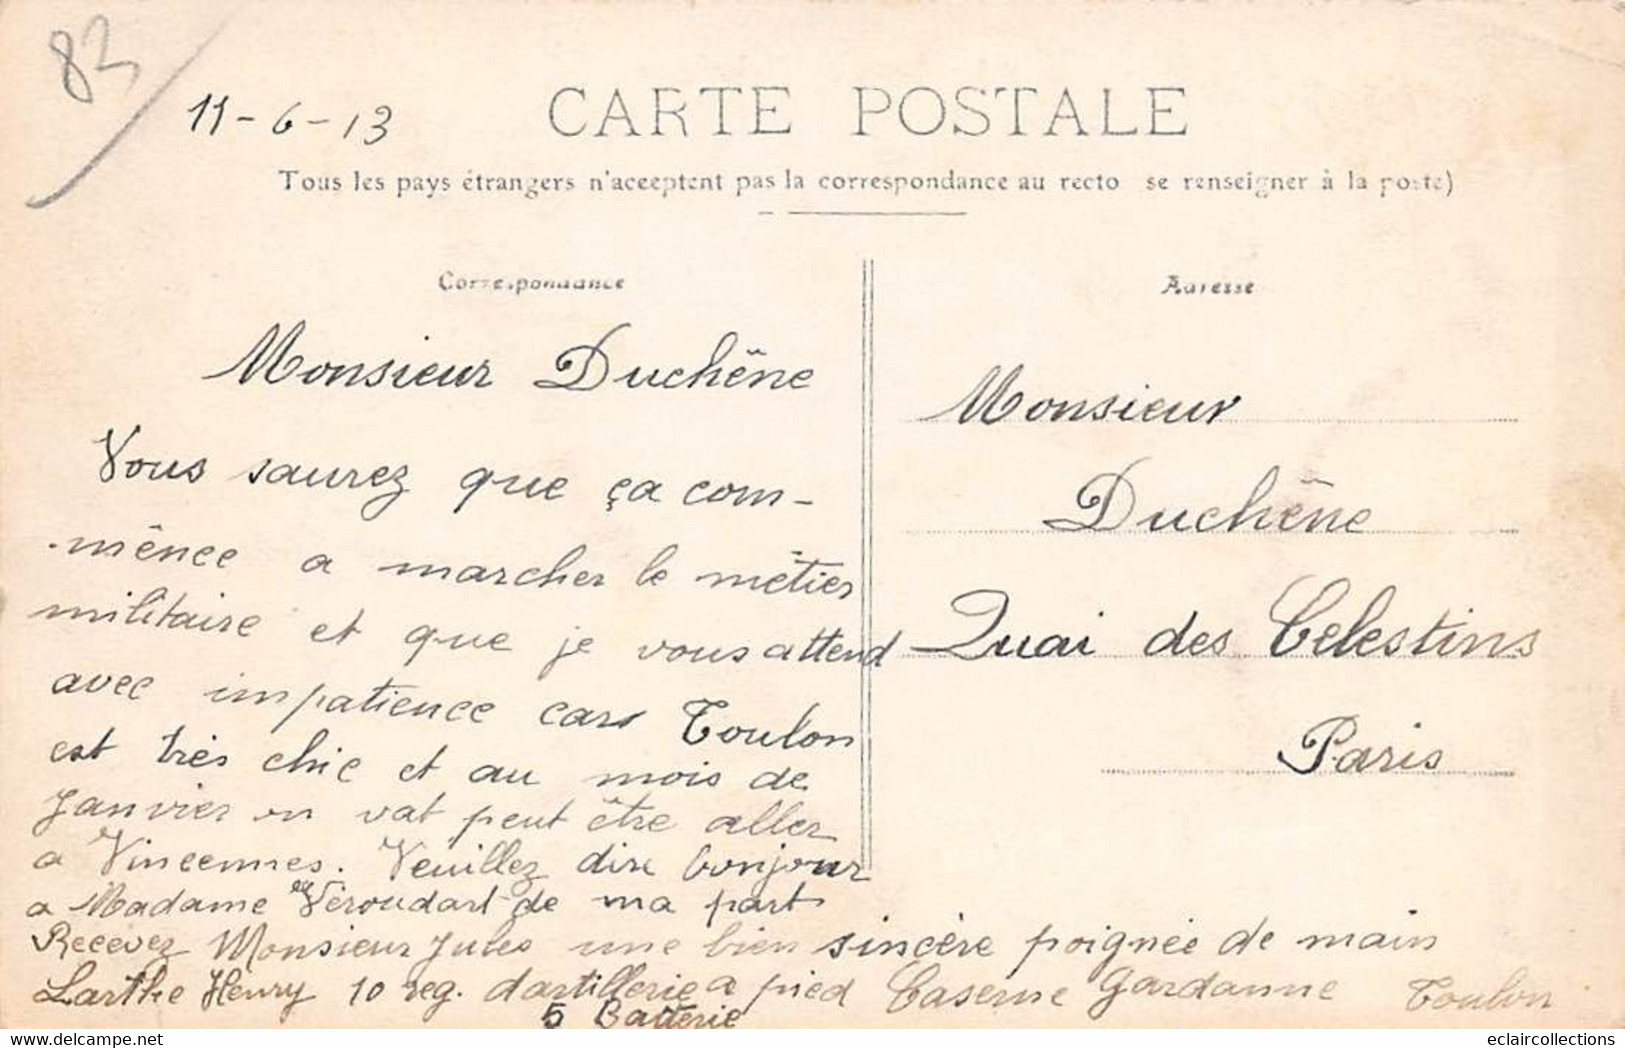 83
11-6-13
CARTE POSTALE
Tous les pays étrangers n'acceptent pas la correspondance au recto se renseigner à la poste)
Correspondance
Monsieur Duchêne
Vous saurez que ça com-
-mênce a marcher le métier
militaire et que je vous attend
avec impatience cars Toulon
est très chic et au mois de
Janvier on vat peut être aller
a Vincennes. Veuillez dire bonjour
a Madame Véroudart de ma part
Recevez Monsieur Jules une bien sincère poignée de main
Larthe Henry 10 reg. dartillerie a pied Caserne Gardanne Toulon
5 Batterie
Adresse
Monsieur
Duchêne
Quai des Celestins
Paris
eclaircollections